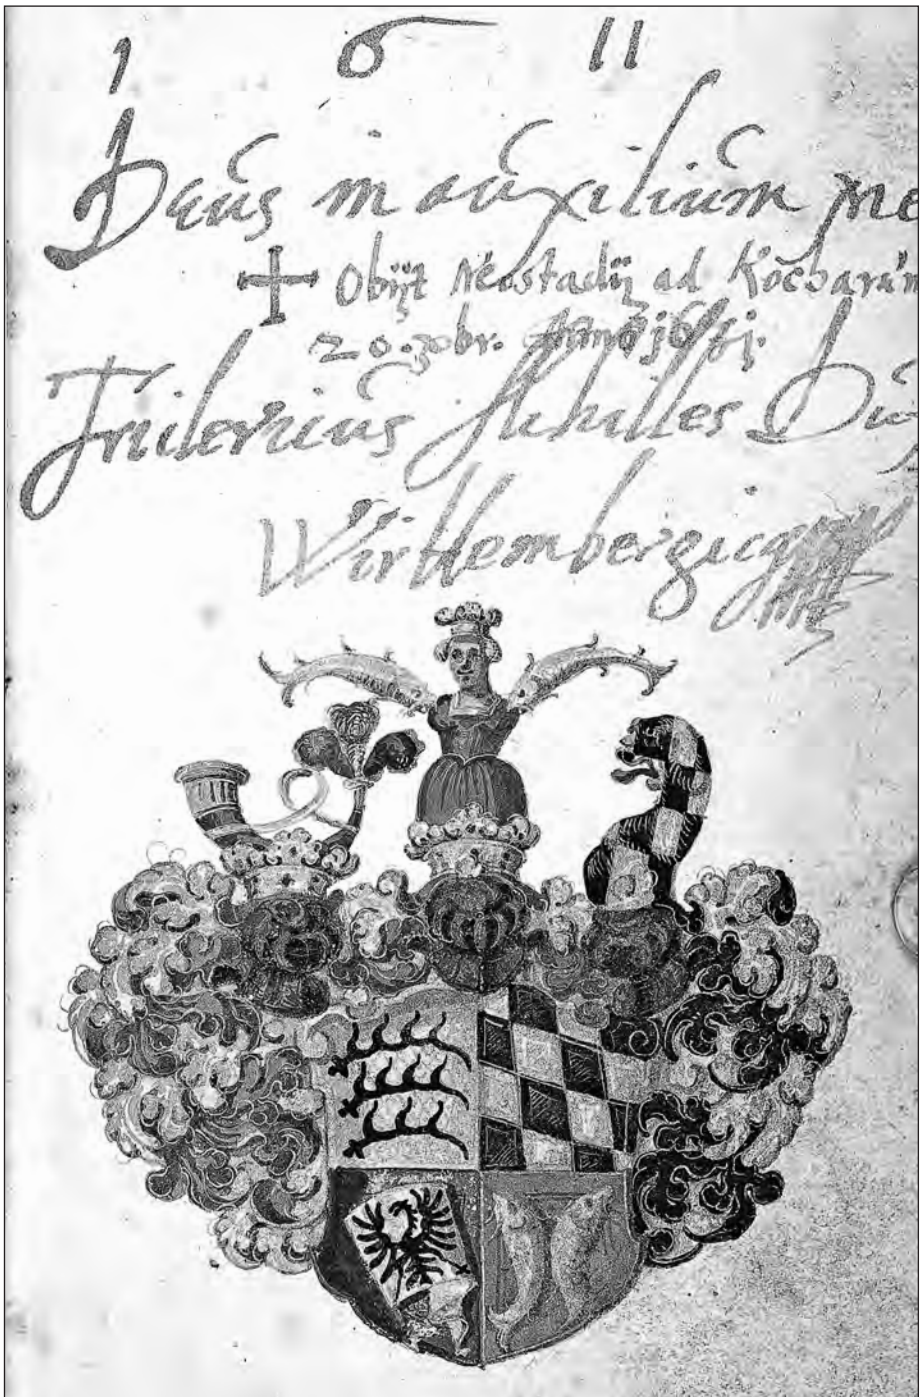 1 6 11
Deus in auxilium me
Obijt Neostadij ad Kocharum
20. Xbr. Anno
Fridericus Achilles Dux
Wirttembergicq